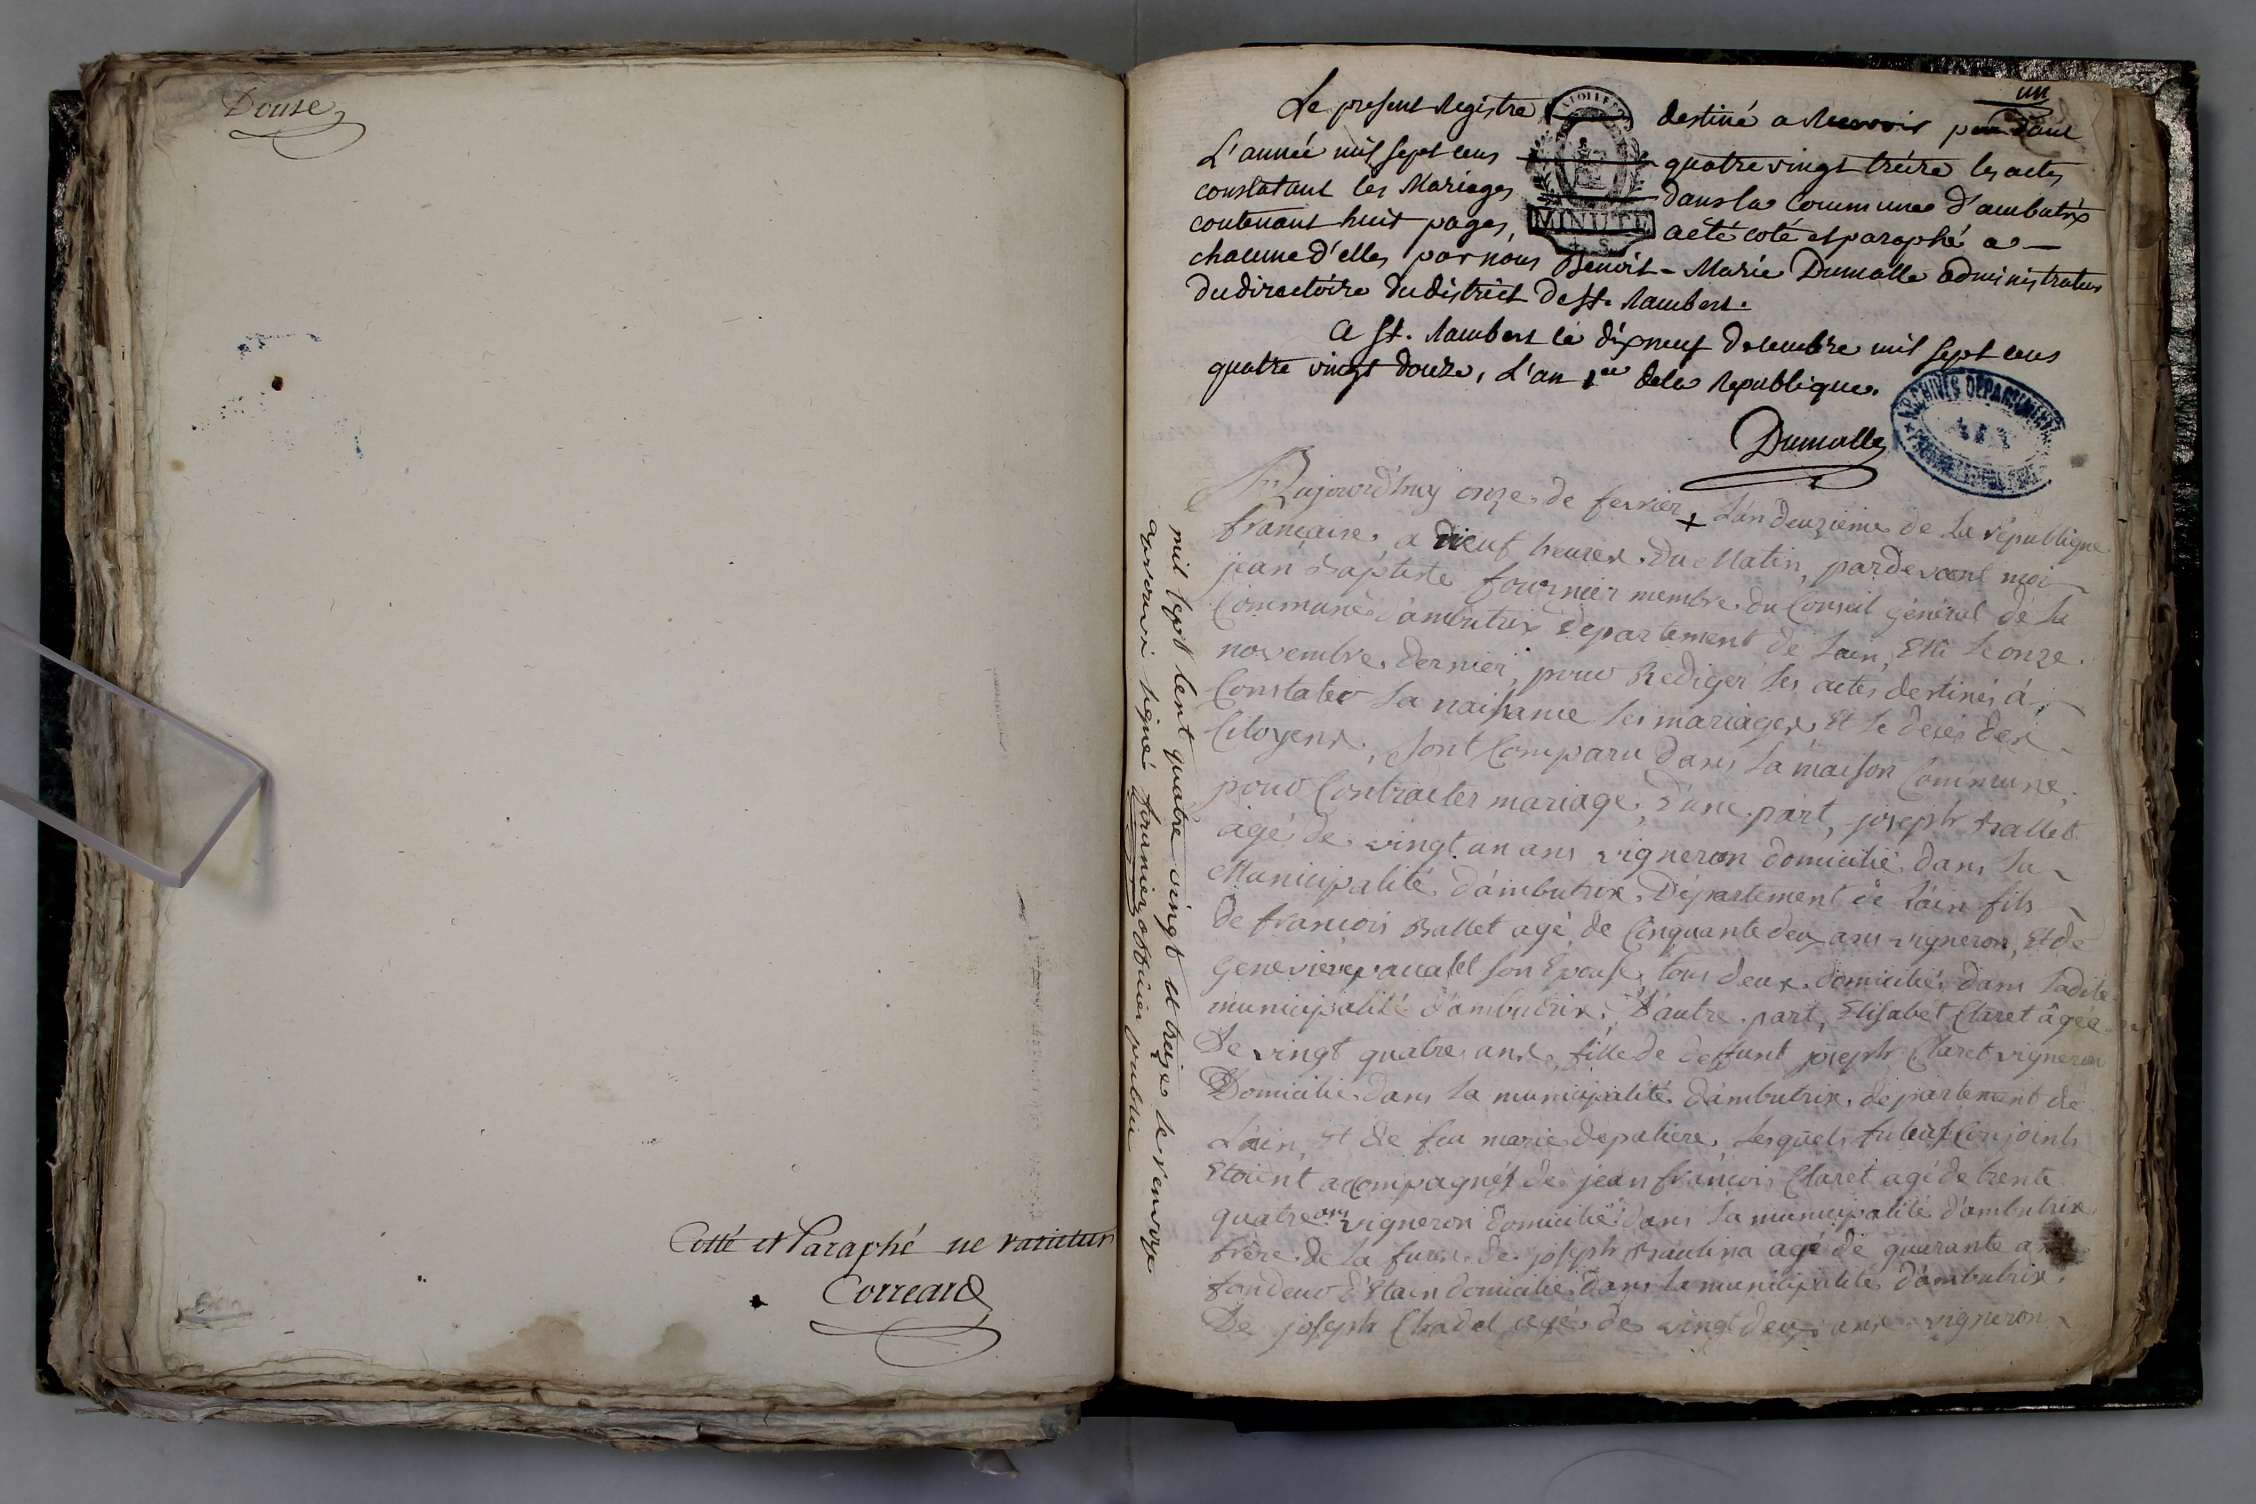 Douze
Cotté et Paraphé ne varietur
Correard
un
Le present Registre destiné a Recevoir pendant
L'année mil sept cens quatre vingt treize les actes
constatant les Mariages dans la Commune d'ambutrix
contenant huit pages, a été coté et paraphé a
chacune d'elles par nous Benoit-Marie Dumolle administrateur
du directoire du district de St. Rambert.
A St. Rambert le dix neuf decembre mil sept cens
quatre vingt douze, L'an 1er de la Republique.
Dumolle
MINUTE
ARCHIVES DEPARTEMENT
Aujourd'huy onze de fevrier + L'an deuzième de La république
française, a neuf heures du Matin, pardevant moi
jean Baptiste fournier membre du Conseil général de la
Commune d'ambutrix département de Lain, Elu le onze
novembre dernier, pour Rediger les actes destinés à
Constater La naissance les mariages et le décès des
Citoyens, sont Comparu dans La maison Commune,
pour Contracter mariage, d'une part, joseph Ballet
agé de vingt un ans vigneron domicilié dans La
Municipalité d'ambutrix, Département de Lain fils
de françois Ballet agé de Cinquante deux ans vigneron, Et de
Genevieve son Epouse, tous deux domiciliés dans Ladite
municipalité d'ambutrix; D'autre part, Elisabet Claret âgée
De vingt quatre ans, fille de deffunt joseph Claret vigneron
Domicilié dans La municipalité d'ambutrix, département de
Lain, et de feu marie depaliere, Lesquels futurs Conjoints
Etoient acompagnés de jean françois Claret agé de trente
quatre ans vigneron domicilié dans La municipalité d'ambutrix
frère de La future de joseph Baulina agé de quarante ans
fondeur d'Etain domicilié dans La municipalité d'ambutrix,
De joseph Chadel agé de vingt deux ans vigneron
mil sept cent quatre vingt et treize le renvoye
aprouvé signé fournier officier public